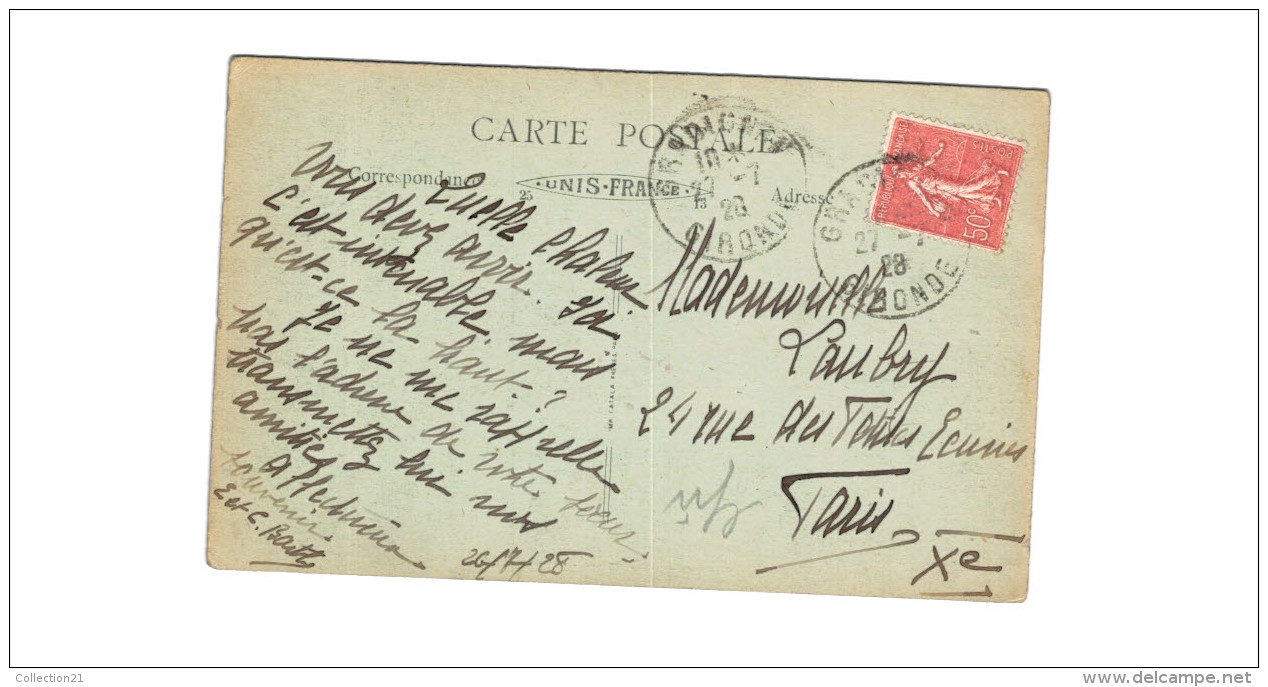 CARTE POSTALE
Correspondance
25
UNIS-FRANCE
13
Adresse
GRADIGNAN
27 -7
28
GIRONDE
GRADIGNAN
27 -7
28
GIRONDE
RÉPUBLIQUE FRANÇAISE
POSTES
50c
Quelle chaleur
vous devez avoir. Ici
c'est intenable, mais
qu'est-ce là haut ?
Je ne me rappelle
pas l'adresse de votre sœur
transmettez lui nos
amitiés
Affectueux
souvenir
E et C.
26/7/28
Mademoiselle
Laubry
24 rue des Petites Ecuries
Paris
Xe
Collection21
delcampe.net